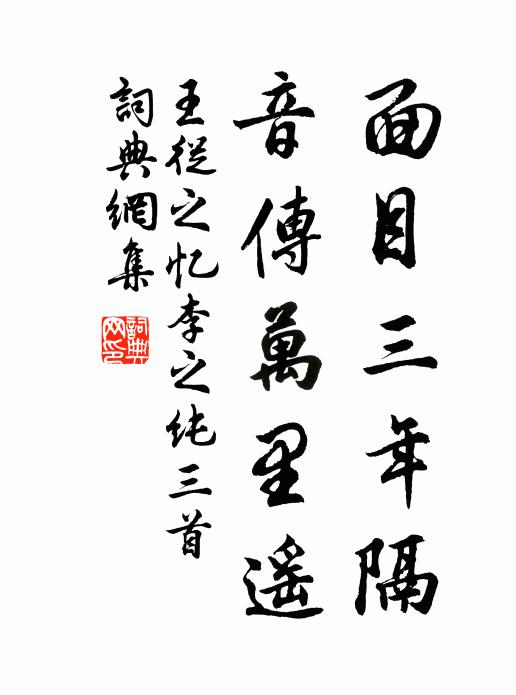 面目三年隔
音傳萬里遥
王從之忆李之纯三首
詞典網集
詞典網印